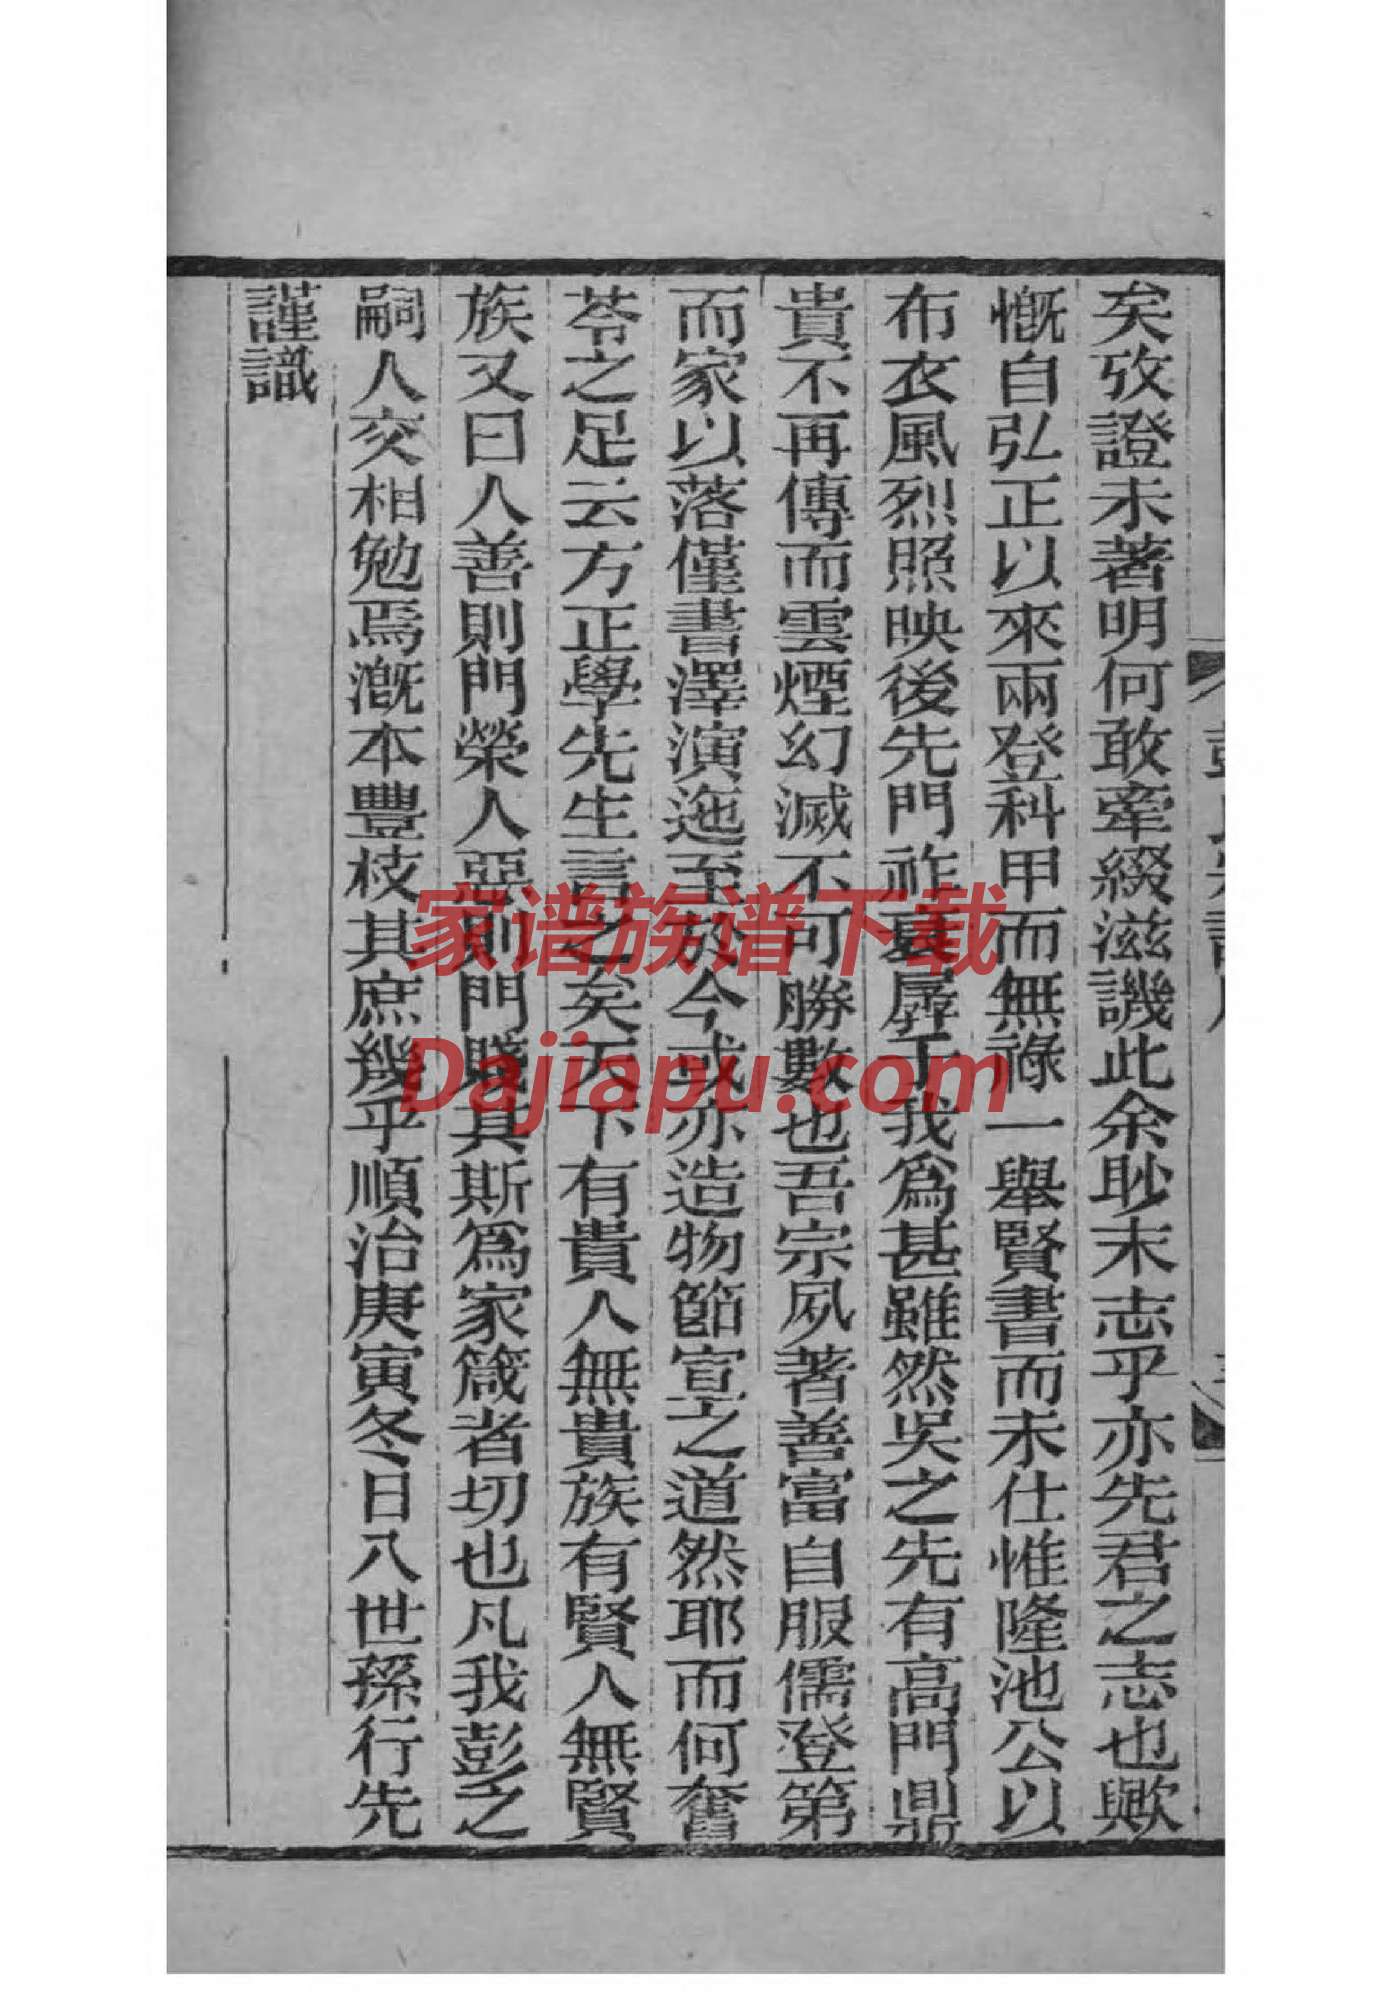 矣攷證未著明何敢牽綴滋譏此余眇末志乎亦先君之志也歟
慨自弘正以來兩登科甲而無祿一舉賢書而未仕惟隆池公以
布衣風烈照映後先門祚夏孱于我為甚雖然吳之先有高門鼎
貴不再傳而雲煙幻滅不可勝數也吾宗夙著善富自服儒登第
而家以落僅書澤演迤至於今或亦造物節宣之道然耶而何奮
苓之足云方正學先生言之矣天下有貴人無貴族有賢人無賢
族又曰人善則門榮人惡則門賤其斯為家箴者切也凡我彭之
嗣人交相勉焉溉本豐枝其庶幾乎順治庚寅冬日八世孫行先
謹識
家谱族谱下载
Dajiapu.com